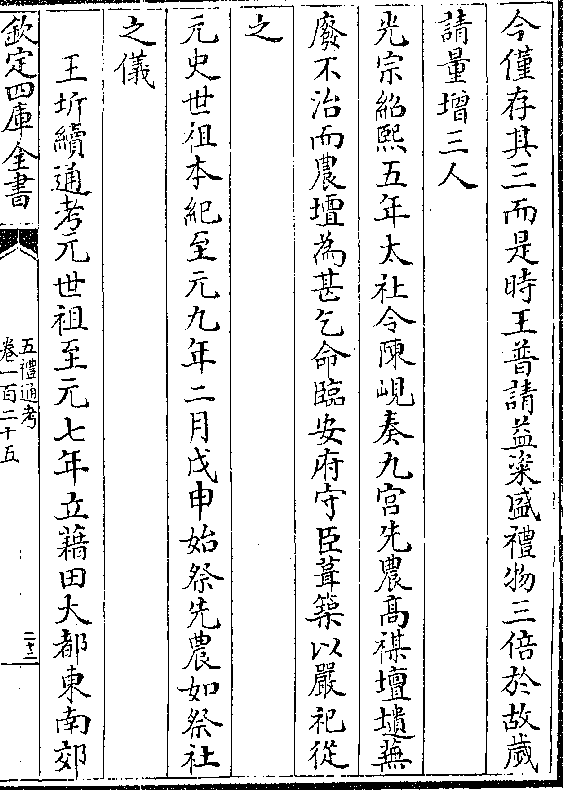 今僅存其三而是時王普請益粢盛禮物三倍於故歲
請量增三人
光宗紹熙五年太社令陳峴奏九宫先農高禖壇壝蕪
廢不治而農壇為甚乞命臨安府守臣葺築以嚴祀從
之
元史世祖本紀至元九年二月戊申始祭先農如祭社
之儀
王圻續通考元世祖至元七年立藉田大都東南郊
欽定四庫全書
五禮通考
卷一百二十五
二十三